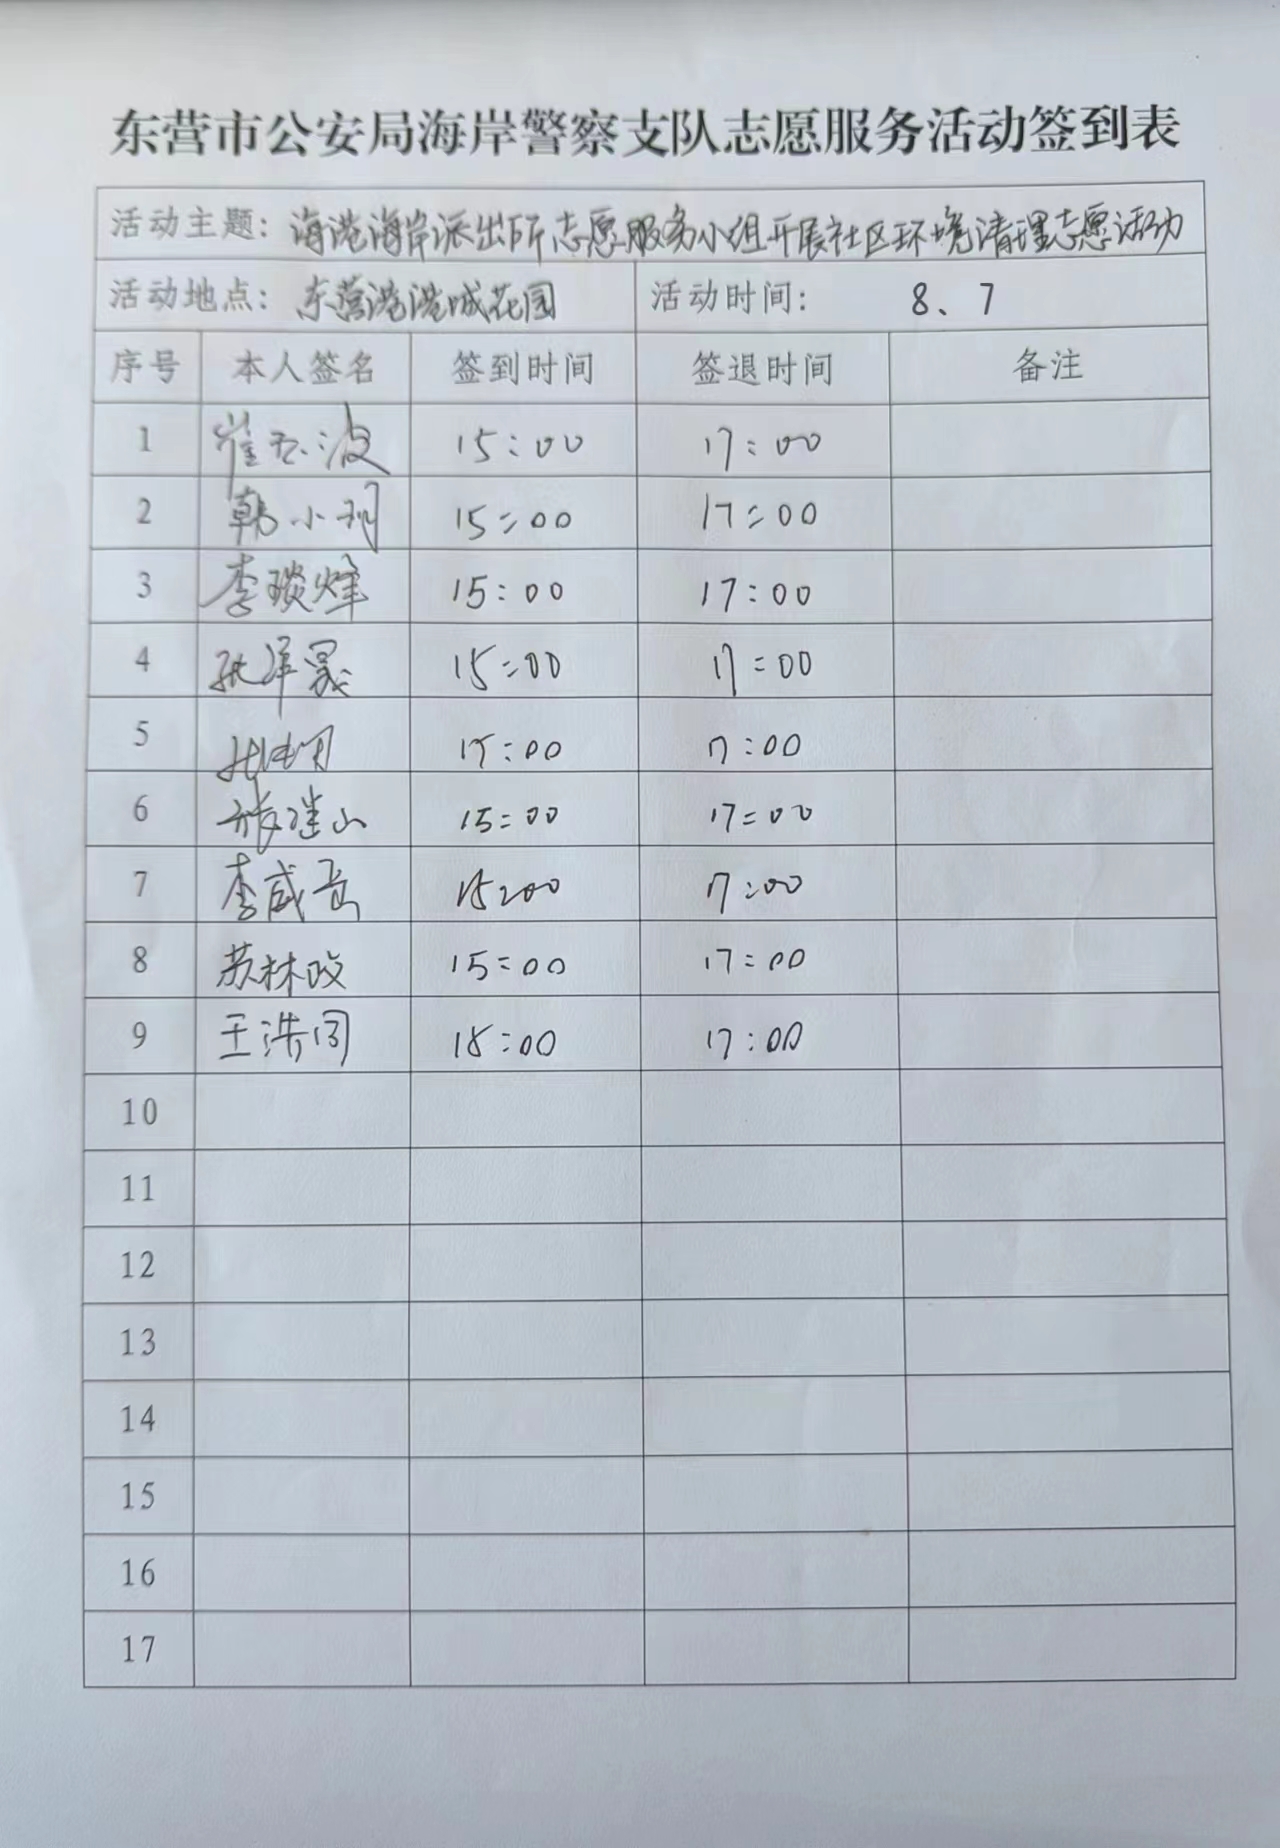 东营市公安局海岸警察支队志愿服务活动签到表
活动主题：海港海岸派出所志愿服务小组开展社区环境清理志愿活动
活动地点：东营港港城花园 活动时间： 8、7
序号 本人签名 签到时间 签退时间 备注
1 崔 波 15:00 17:00
2 韩小 15:00 17:00
3 李琰烽 15:00 17:00
4 15:00 17:00
5 15:00 17:00
6 山 15:00 17:00
7 李咸岳 15:00 17:00
8 苏林政 15:00 17:00
9 王浩同 15:00 17:00
10
11
12
13
14
15
16
17